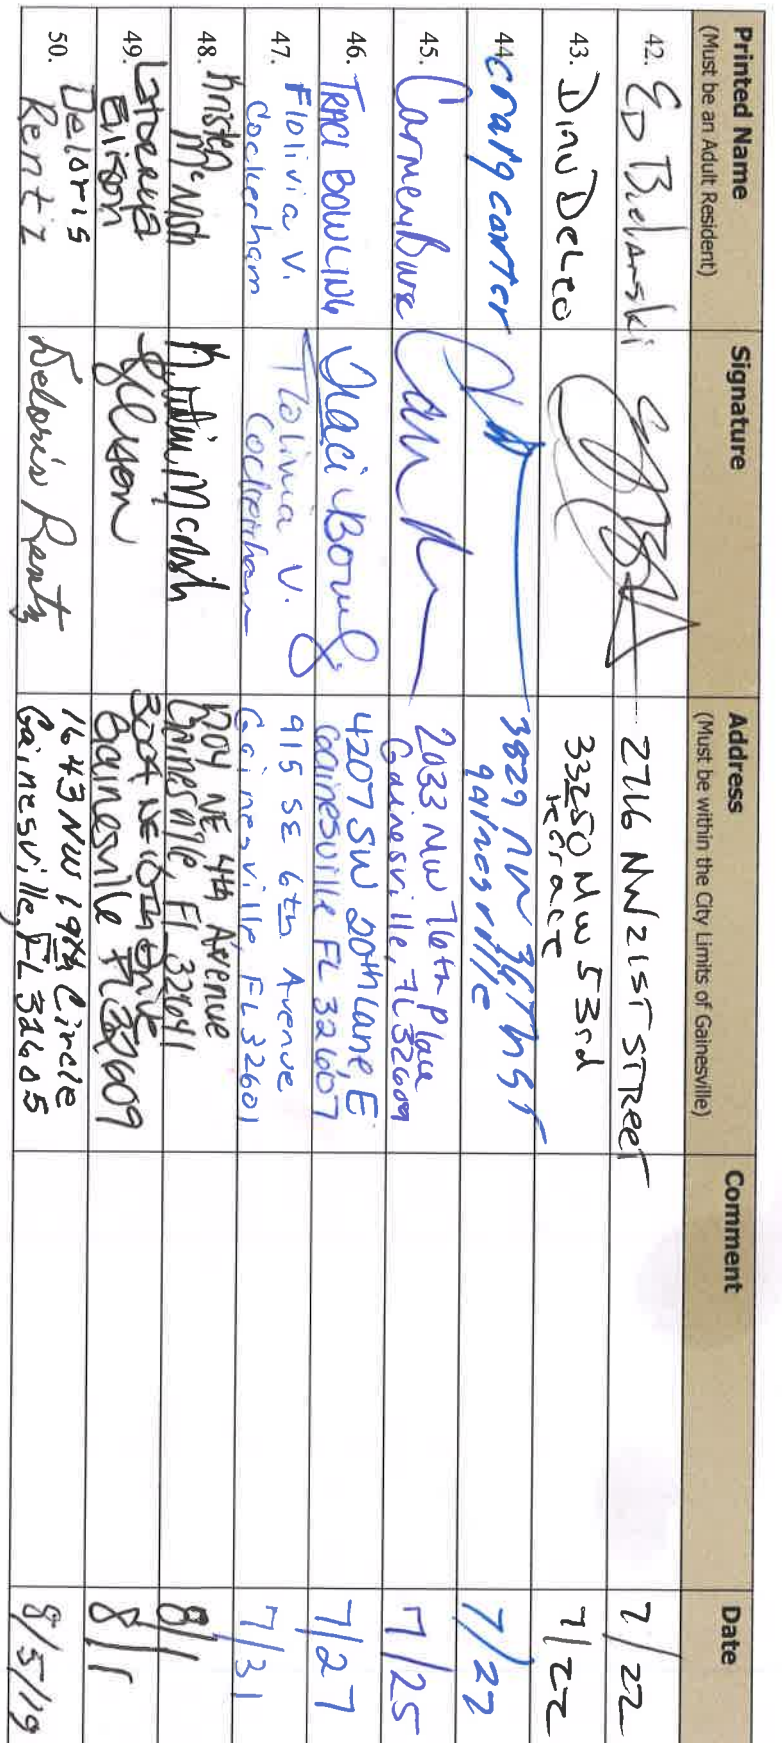 Printed Name
(Must be an Adult Resident)
Signature
Address
(Must be within the City Limits of Gainesville)
Comment
Date
42. ED Bielarski
2716 NW 21ST STREET
7/22
43. Dinu DeLeo
33250 NW 53rd
terrace
7/22
44. craig carter
3829 NW 36Th ST
gainesville
7/22
45. Carmen
2033 NW 76th Place
Gainesville, FL 32609
7/25
46. TRACI BOWLING
Traci Bowling
4207 SW 20th Lane E
Gainesville FL 32607
7/27
47. Flolivia V.
Cockerham
Flolivia V.
Cockerham
915 SE 6th Avenue
Gainesville, FL 32601
7/31
48. Kristen
McNish
McNish
1204 NE 4th Avenue
Gainesville, Fl 32641
8/1
49.
Ellison
Ellison
NE 10th Drive
Gainesville FL 32609
8/1
50. Deloris
Rentz
Deloris Rentz
1643 NW 19th Circle
Gainesville, FL 32605
8/5/19